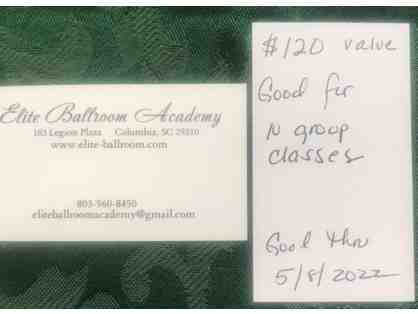 Elite Ballroom Academy
183 Legion Plaza Columbia, SC 29210
www.elite-ballroom.com
803-960-8450
eliteballroomacademy@gmail.com
$120 value
Good for
group
classes
Good thru
5/8/2022